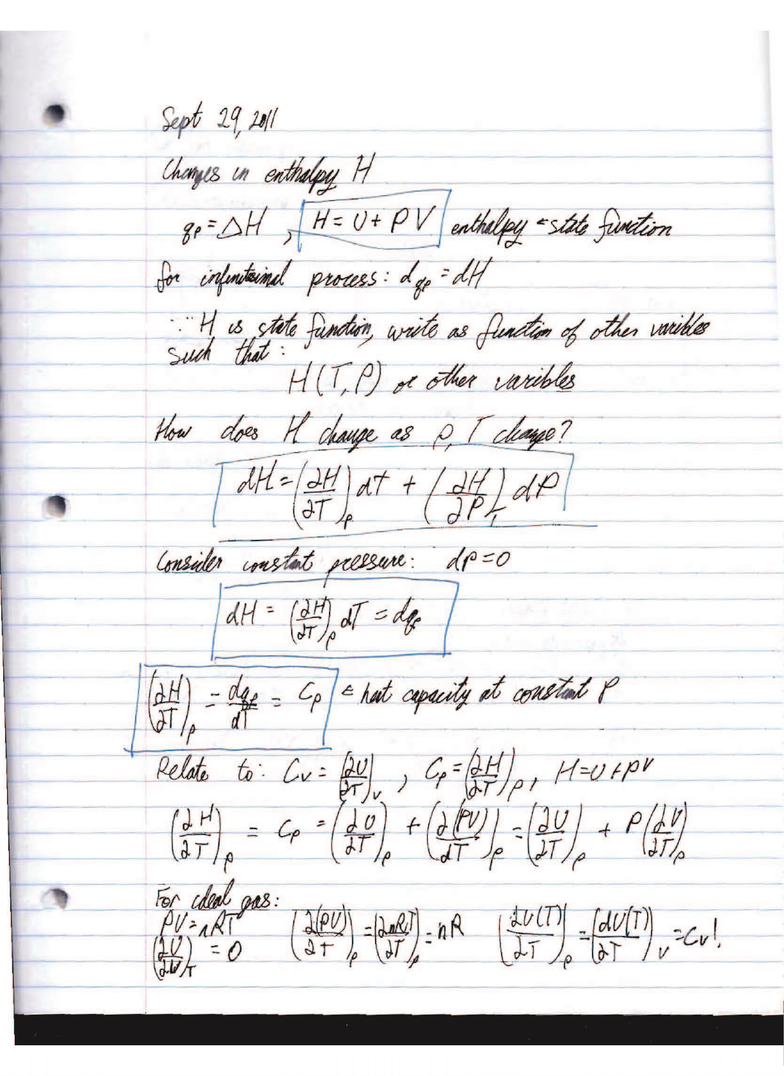 Sept 29, 2011
Changes in enthalpy H
qₚ = ΔH , H = U + PV enthalpy ← state function
for infinitesimal process: dqₚ = dH
∵ H is state function, write as function of other varibles
such that:
H(T,P) or other varibles
How does H change as P, T change?
dH = (∂H/∂T)ₚ dt + (∂H/∂P)_T dP
Consider constant pressure: dP = 0
dH = (∂H/∂T)ₚ dT = dqₚ
(∂H/∂T)ₚ = dqₚ/dT = Cₚ ← heat capacity at constant P
Relate to: Cᵥ = (∂U/∂T)ᵥ , Cₚ = (∂H/∂T)ₚ , H = U + PV
(∂H/∂T)ₚ = Cₚ = (∂U/∂T)ₚ + (∂(PV)/∂T)ₚ = (∂U/∂T)ₚ + P(∂V/∂T)ₚ
For ideal gas:
PV = nRT (∂(PV)/∂T)ₚ = (∂nRT/∂T)ₚ = nR (∂U(T)/∂T)ₚ = (dU(T)/∂T)ᵥ = Cᵥ!
(∂U/∂V)_T = 0